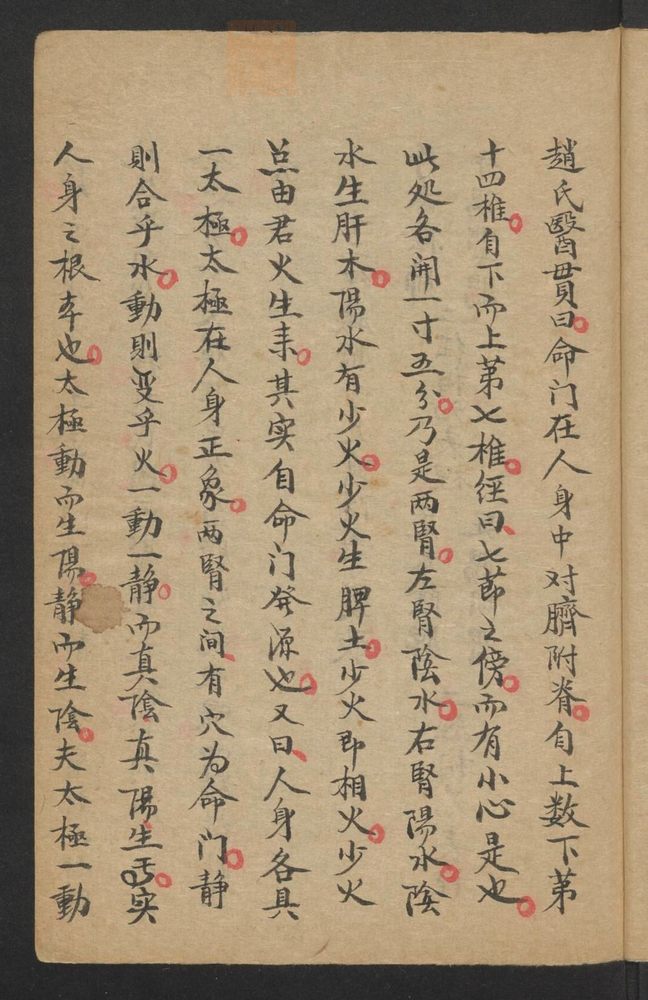 趙氏醫貫曰命门在人身中对臍附脊自上数下第
十四椎自下而上第七椎経曰七莭之傍而有小心是也
此处各開一寸五分乃是两腎左腎陰水右腎陽水陰
水生肝木陽水有少火少火生脾土少火即相火少火
总由君火生来其实自命门發源也又曰人身各具
一太極太極在人身正象两腎之间有穴为命门静
則合乎水動則变乎火一動一静而真陰真陽生焉实
人身之根本也太極動而生陽静而生陰夫太極一動